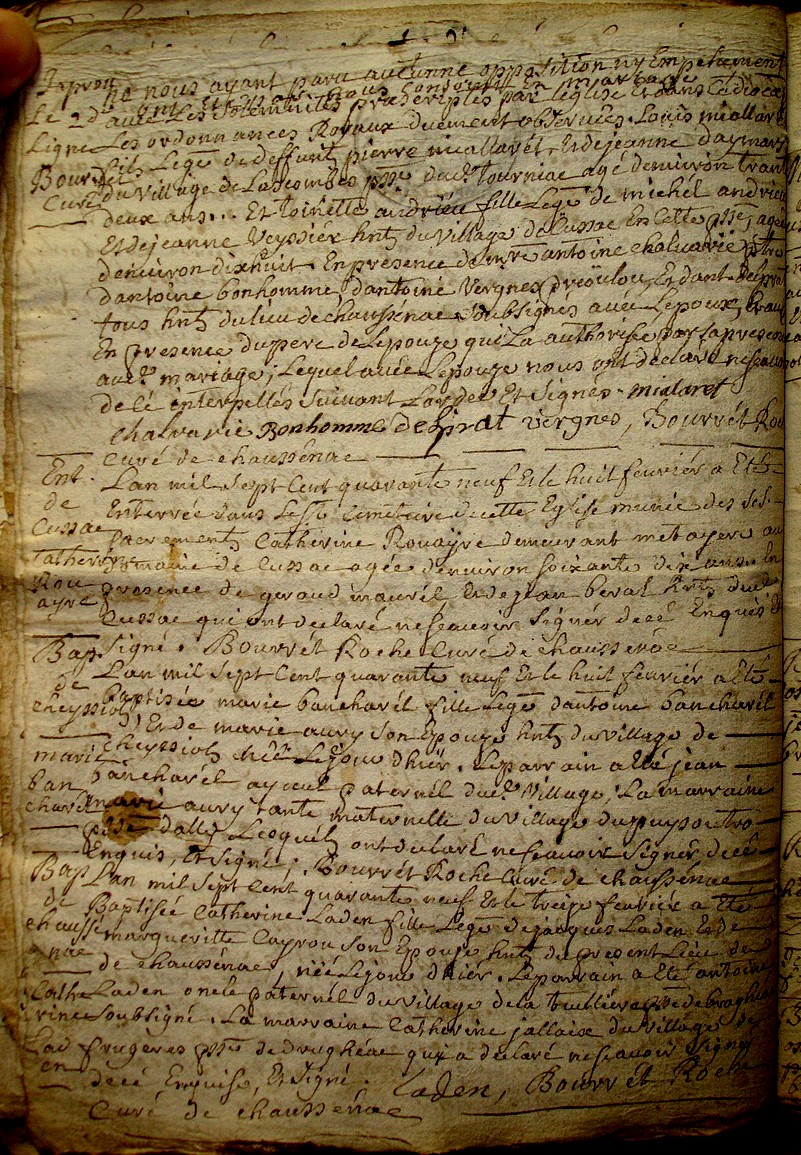 ne nous ayant paru aucunne opposition ny Empechement
ont Eté par nous conjoints En mariage
avec Les solemnités prescriptes par L'église Et dans Le dioceze
Les ordonnances Royaux duement observées. Louis miallaret
fils Lege de deffunt pierre miallaret, Et de jeanne daymars
du village de Lascombes psse duct tourniac agé denviron trante
deux ans.. Et toinette andrieu fille Lege de michel andrieu
Et de jeanne Veyssiér hnts du village de Cussac En cette psse, agée
denviron dixhuit. En presence de mre antoine chalvarie ptre
dantoine bonhomme, dantoine Vergnes dreoulou, Et dant. delprat
tous hnts du lieu de chaussenac soubsignés avec Lepoux,
En presence du pere de Lepouze qui La authorisée par sa presence
audt mariage; Lequel avec Lepouze nous ont declaré ne scavoir
de ce interpellés suivant Lordce Et signés. mialaret
chalvarie Bonhomme delprat vergnes, Bourrét Roche
Curé de chaussenac
Ent.
de
Cussac
Catherine
Rou
ayre
Lan mil sept Cent quarante neuf Et le huit fevriér a Eté
Enterrée dans Le cemetiere decette Eglise munie des sts
sacrements Catherine Rouayre demeurant metayere au
domaine de Cussac agée denviron soixante dix ans. En
presence de geraud maurél Et de jean beral hnts dudt
Cussac qui ont declaré ne scavoir signér de cé Enquis Et
signé. Bourrét Roche Curé de chaussenac
Bap.
de
cheyssiol
marie
ban
charel
Lan mil sept Cent quarante neuf Et le huit fevriér a Eté
Baptisée marie bancharél fille Lege dantoine bancharél
Et de marie aury son Epouze hnts du village de
cheyssiol, née Lejour dhiér. Leparrain a Eté jean
bancharél ayeul paternél dudt Village, La marraine
marie aury tante maternelle du village du puysoutro
psse dally Lesquels ont declaré ne scavoir signér, de cé
Enquis, Et signé. Bourrét Roche Curé de chaussenac
Bap
de
chausse
nac
Cathe
rine
Lad
en
Lan mil sept Cent quarante neuf Et le treize fevriér a Eté
Baptisée Catherine Laden fille Lege de jacques Laden Et de
marqueritte Cayrou son Epouze hnts du present Lieu de
de chaussenac, née Lejour dhiér. Leparrain a Eté antoine
Laden oncle paternél du village de la tuilliére psse de
soubsigné. La marraine Catherine jallaix du village de
frugeres psse de drugheac qui a declaré ne scavoir signér
de cé Enquise, Et signé. Laden, Bourrét Roche
Curé de chaussenac